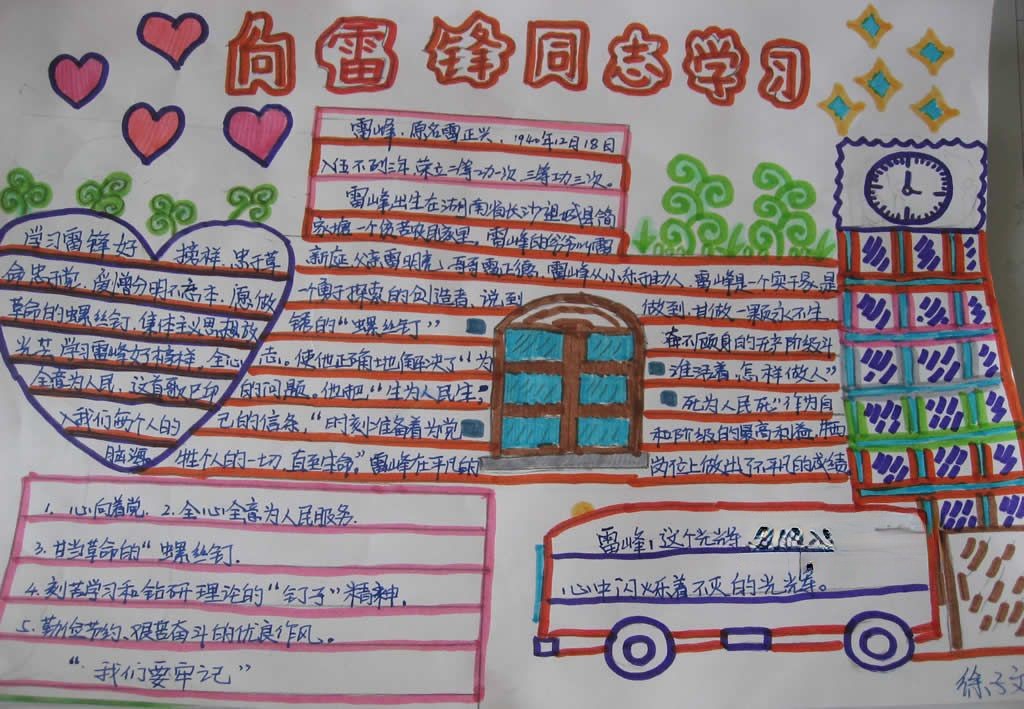 向雷锋同志学习
雷峰，原名雷正兴，1940年12月18日
入伍不到三年，荣立二等功一次，三等功三次。
雷峰出生在湖南省长沙望城县简
家塘一个贫苦农民家里，雷峰的爷爷叫雷
新庭，父亲雷明亮，哥哥雷正德，雷峰从小乐于助人，雷峰是一个实干家，是
一个勇于探索的创造者，说到 做到，甘做一颗永不生
锈的“螺丝钉” 奋不顾身的无产阶级斗
志。使他正确地解决了“为 谁活着，怎样做人”
的问题。他把“生为人民生， 死为人民死”作为自
己的信条，“时刻准备着为党 和阶级的最高利益，牺
牲个人的一切，直至生命”雷峰在平凡的 岗位上做出了不平凡的成绩
学习雷锋好 榜样，忠于革
命忠于党，爱憎分明不忘本，愿做
革命的螺丝钉，集体主义思想放
光芒，学习雷峰好榜样，全心
全意为人民，这首歌已印
入我们每个人的
脑海
1. 心向着党. 2. 全心全意为人民服务.
3. 甘当革命的“螺丝钉.
4. 刻苦学习和钻研理论的“钉子”精神，
5. 勤俭节约、艰苦奋斗的优良作风。
“我们要牢记”
雷峰，这个光
心中闪烁着不灭的光
徐子文